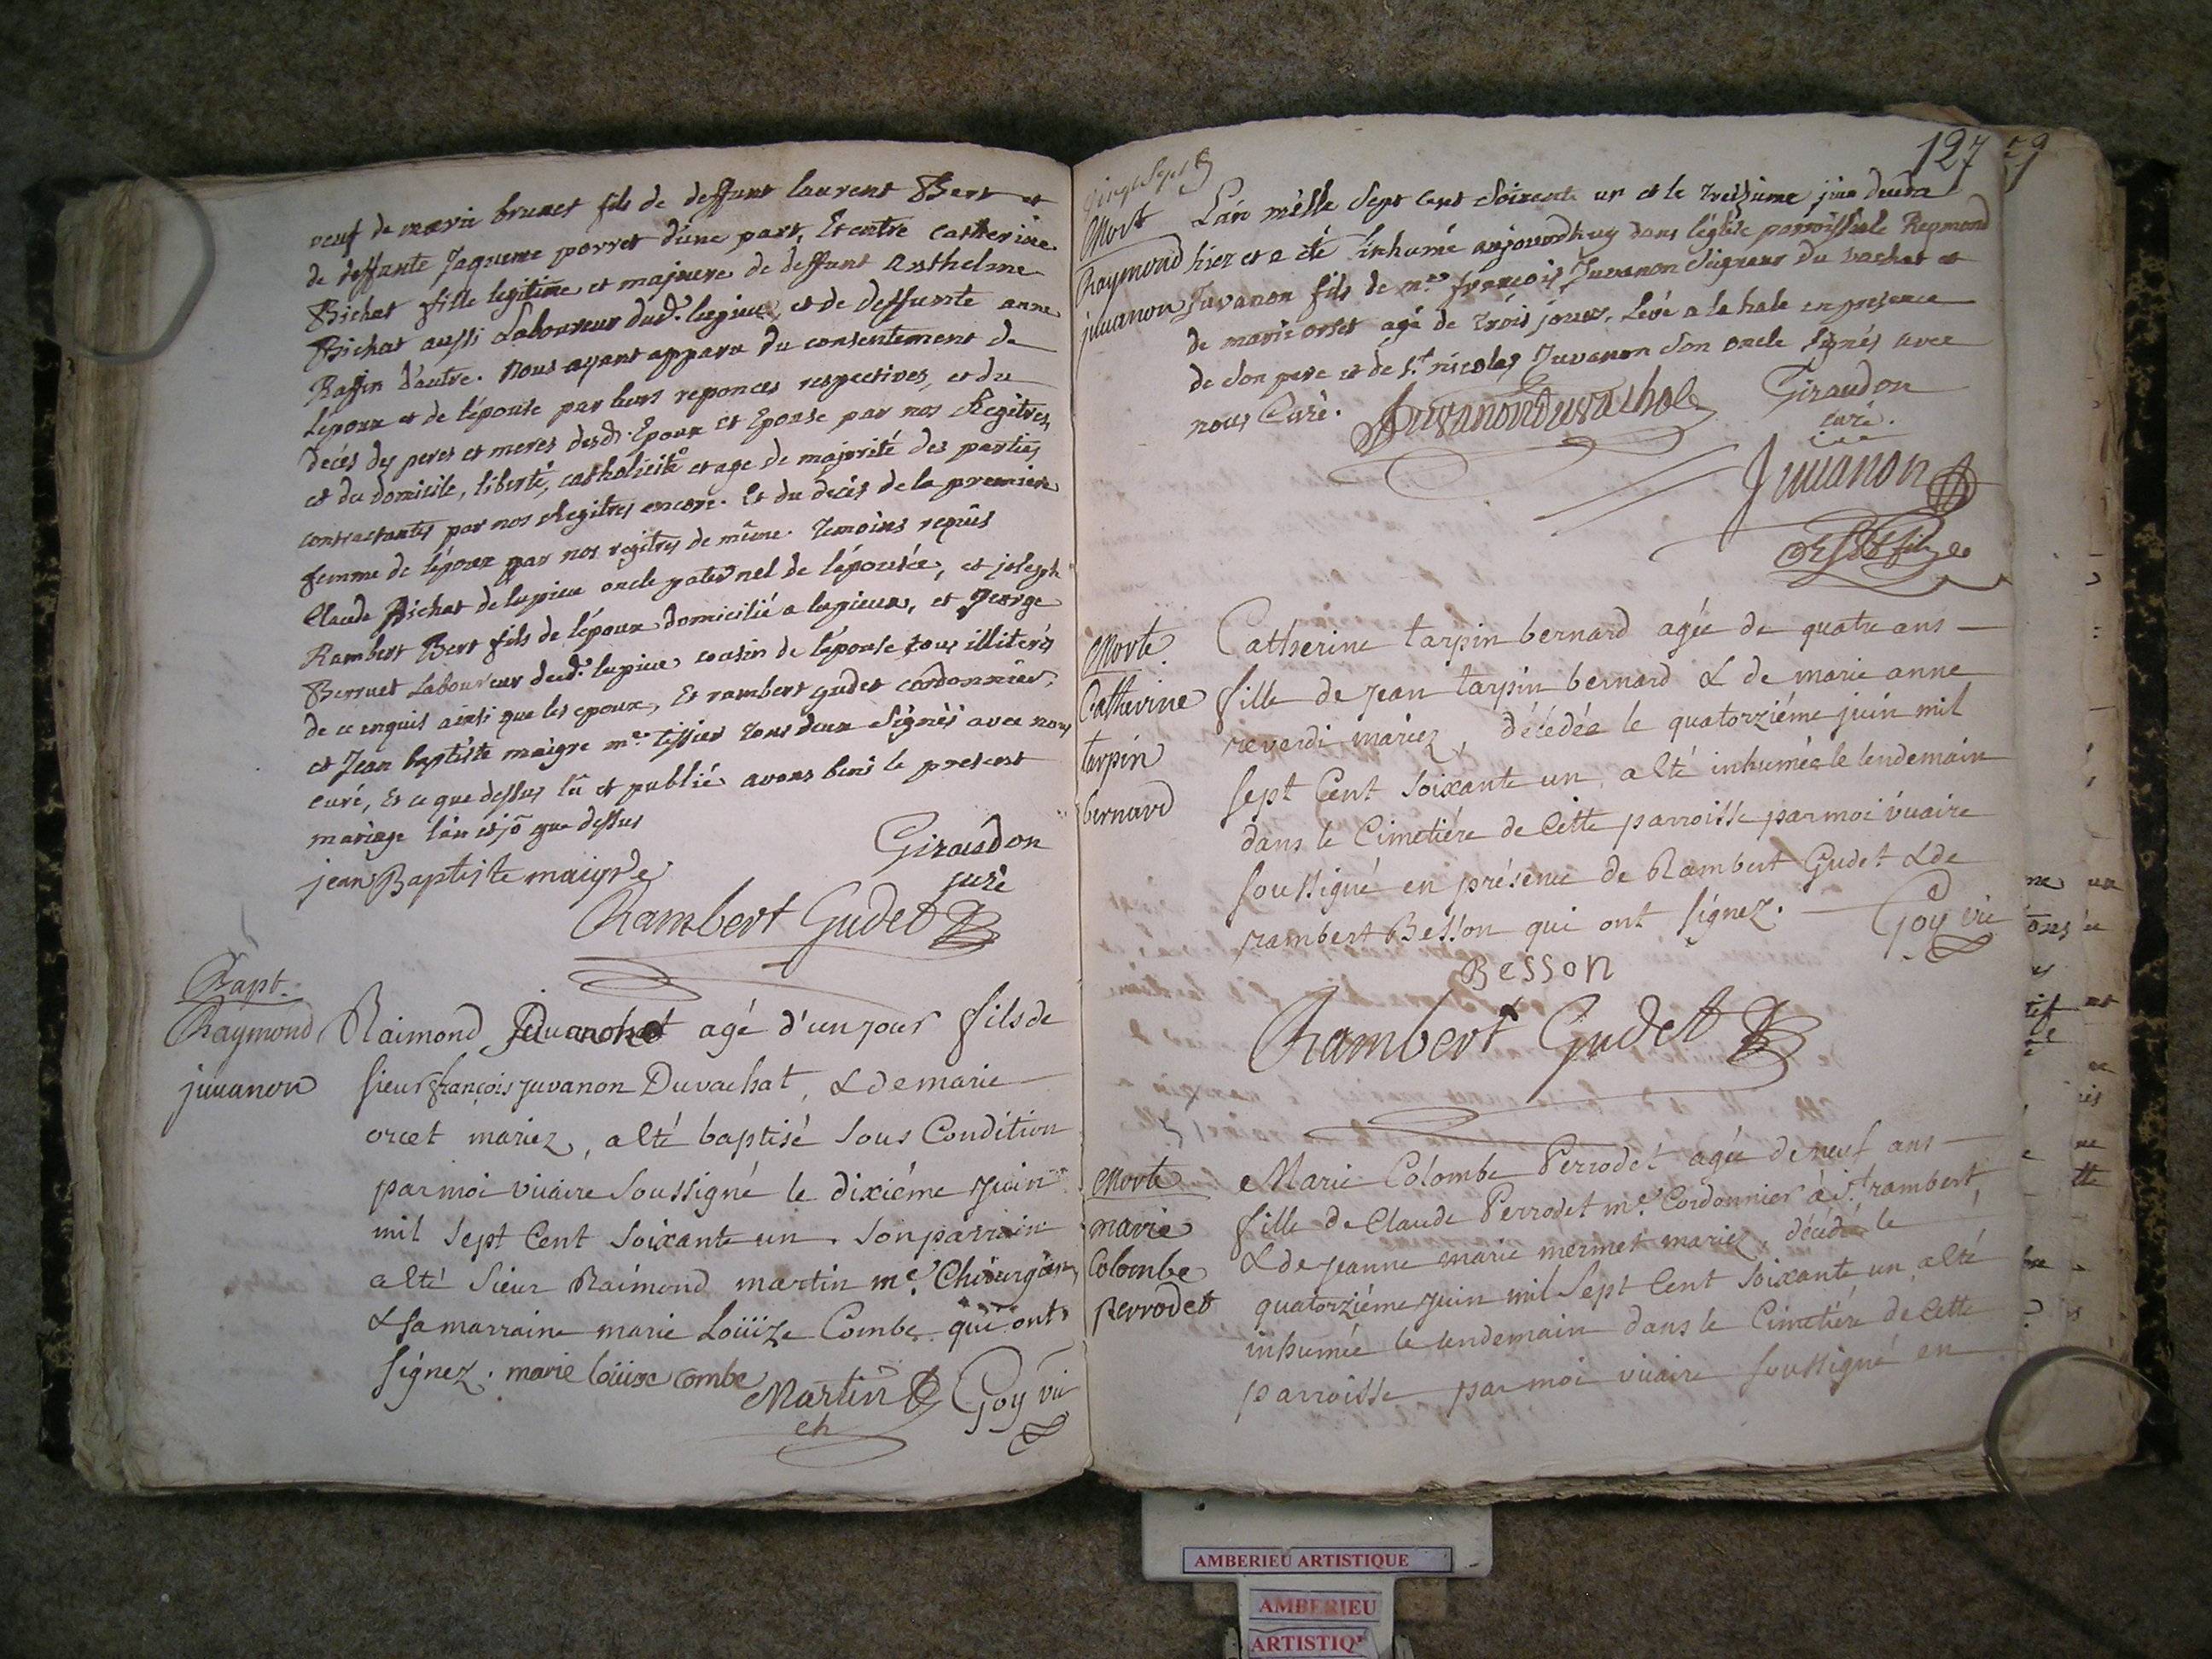 veuf de marie brunet fils de deffunt laurent Bert et
de deffunte Jaqueme porret d'une part, Et entre Catherine
Bichat fille legitime et majeure de deffunt Anthelme
Bichat aussi Laboureur dud.t lupieu, et de deffunte anne
Raffin d'autre. Nous ayant apparu du consentement de
l'époux et de l'épouse par leurs reponces respectives, et du
decés des peres et meres desd. Epoux et Epouse par nos Regitres,
et du domicile, liberté, catholicité et age de majorité des parties
contractantes par nos Regitres encore. Et du decés de la premiere
femme de l'époux par nos regitres de même. Temoins requis
Claude Bichat de lupieu oncle paternel de l'épousée, et joseph
Rambert Bert fils de l'époux domicilié a lupieux, et George
Berruet Laboureur dud.t lupieu cousin de l'épouse tous illiterés
de ce enquis ainsi que les epoux, Et rambert gudet cordonnier,
et Jean baptiste maigre m.e tissier tous deux signés avec nous
curé, Et ce que dessus lû et publié avons beni le present
mariage l'an et jõ que dessus
Giraudon
curé
jean Baptiste maigre
Rambert Gudet
Bapt.
Raymond
juuanon
Raimond agé d'un jour fils de
sieur françois Juvanon Duvachat, & de marie
orcet mariez, a été baptisé sous Condition
par moi vicaire soussigné le dixiéme juin
mil sept Cent soixante un. son parrain
a été sieur Raimond martin m.e Chirurgien,
& sa marraine marie Loüïze Combe qui ont
signez. marie loüise combe
Martin Goy vic
ch
vingt Sept
127
59
Mort
Raymond
juuanon
L'an mille Sept cent soixante un et le treizieme juin
hier et a été inhumé aujourdhuy dans l'église parroissiale Reymond
Juvanon fils de m.re françois Juvanon Seigneur du vachat et
de marie orset agé de trois jours. Levé a la hale en presence
de son pere et de S.r nicolas Juvanon son oncle signés avec
nous Curé.
Juvanonduvachat
Giraudon
curé.
Juuanon
Morte
Catherine
tarpin
bernard
Catherine tarpin bernard agée de quatre ans
fille de jean tarpin bernard & de marie anne
reverdi mariez, décédée le quatorziéme juin mil
sept Cent soixante un, a été inhumée le lendemain
dans le Cimetiére de Cette parroisse par moi vicaire
soussigné en présence de Rambert Gudet & de
rambert Besson qui ont signez.
Goy vic
Besson
Rambert Gudet
Morte
marie
Colombe
perrodet
Marie Colombe Perrodet agée de neuf ans
fille de Claude Perrodet m.e Cordonnier à S.t rambert,
& de jeanne marie mermet mariez, décédé le
quatorziéme juin mil Sept Cent soixante un, a été
inhumée le lendemain dans le Cimetiére de Cette
parroisse par moi vicaire soussigné en
AMBERIEU ARTISTIQUE
AMBERIEU
ARTISTIQ